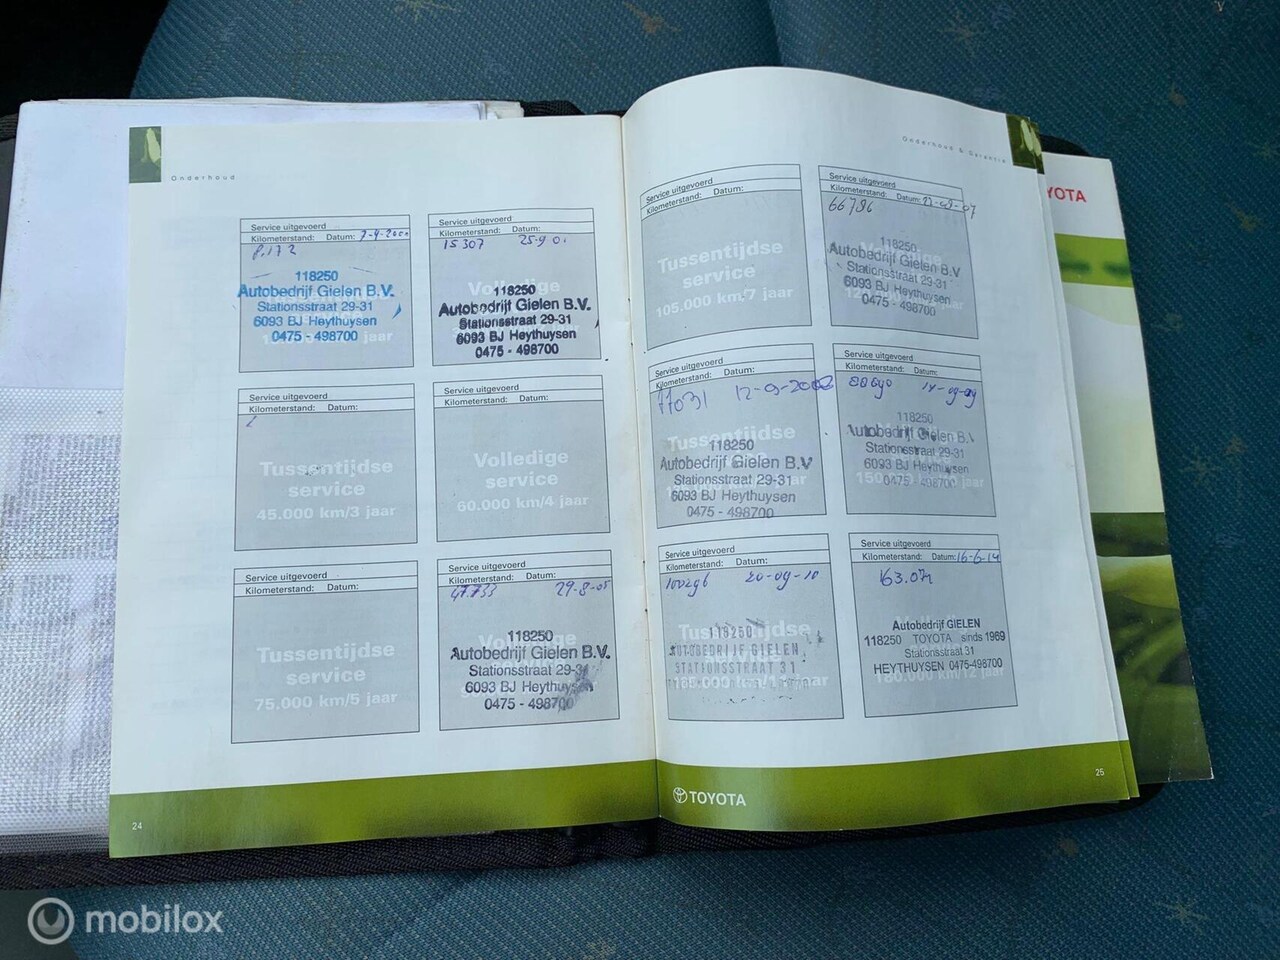 Onderhoud
Service uitgevoerd
Kilometerstand: Datum: 7-9-2000
8.172
118250
Autobedrijf Gielen B.V.
Stationsstraat 29-31
6093 BJ Heythuysen
0475 - 498700
jaar
Service uitgevoerd
Kilometerstand: Datum:
15.307 25-9 01
Volledige
118250
Autobedrijf Gielen B.V.
Stationsstraat 29-31
6093 BJ Heythuysen
0475 - 498700
Service uitgevoerd
Kilometerstand: Datum:
Tussentijdse
service
45.000 km/3 jaar
Service uitgevoerd
Kilometerstand: Datum:
Volledige
service
60.000 km/4 jaar
Service uitgevoerd
Kilometerstand: Datum:
Tussentijdse
service
75.000 km/5 jaar
Service uitgevoerd
Kilometerstand: Datum:
47.733 29-8-05
Volledige
118250
Autobedrijf Gielen B.V.
Stationsstraat 29-31
6093 BJ Heythuysen
0475 - 498700
24
Onderhoud & Garantie
Service uitgevoerd
Kilometerstand: Datum:
Tussentijdse
service
105.000 km/7 jaar
Service uitgevoerd
Kilometerstand: Datum:
66796
Volledige
118250
Autobedrijf Gielen B.V
Stationsstraat 29-31
6093 BJ Heythuysen
0475 - 498700
Service uitgevoerd
Kilometerstand: Datum:
77031
Tussentijdse
118250
Autobedrijf Gielen B.V
Stationsstraat 29-31
6093 BJ Heythuysen
0475 - 498700
Service uitgevoerd
Kilometerstand: Datum:
14-09-09
118250
Autobedrijf Gielen B.V.
Stationsstraat 29-31
6093 BJ Heythuysen
0475 498700
jaar
Service uitgevoerd
Kilometerstand: Datum:
100296 20-09-10
Tussentijdse
118250
AUTOBEDRIJF GIELEN
STATIONSSTRAAT 31
165.000 jaar
Service uitgevoerd
Kilometerstand: Datum: 16-6-14
Autobedrijf GIELEN
118250 TOYOTA sinds 1969
Stationsstraat 31
HEYTHUYSEN 0475-498700
180.000 km/12 jaar
TOYOTA
25
YOTA
mobilox